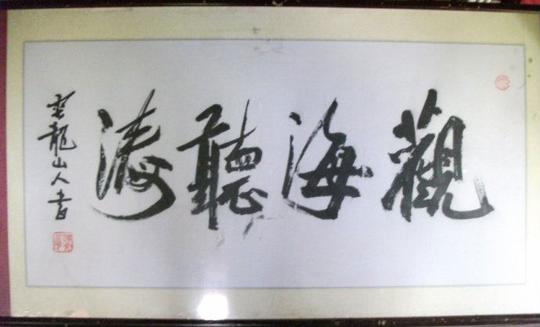 觀海聽濤
雲龍山人書